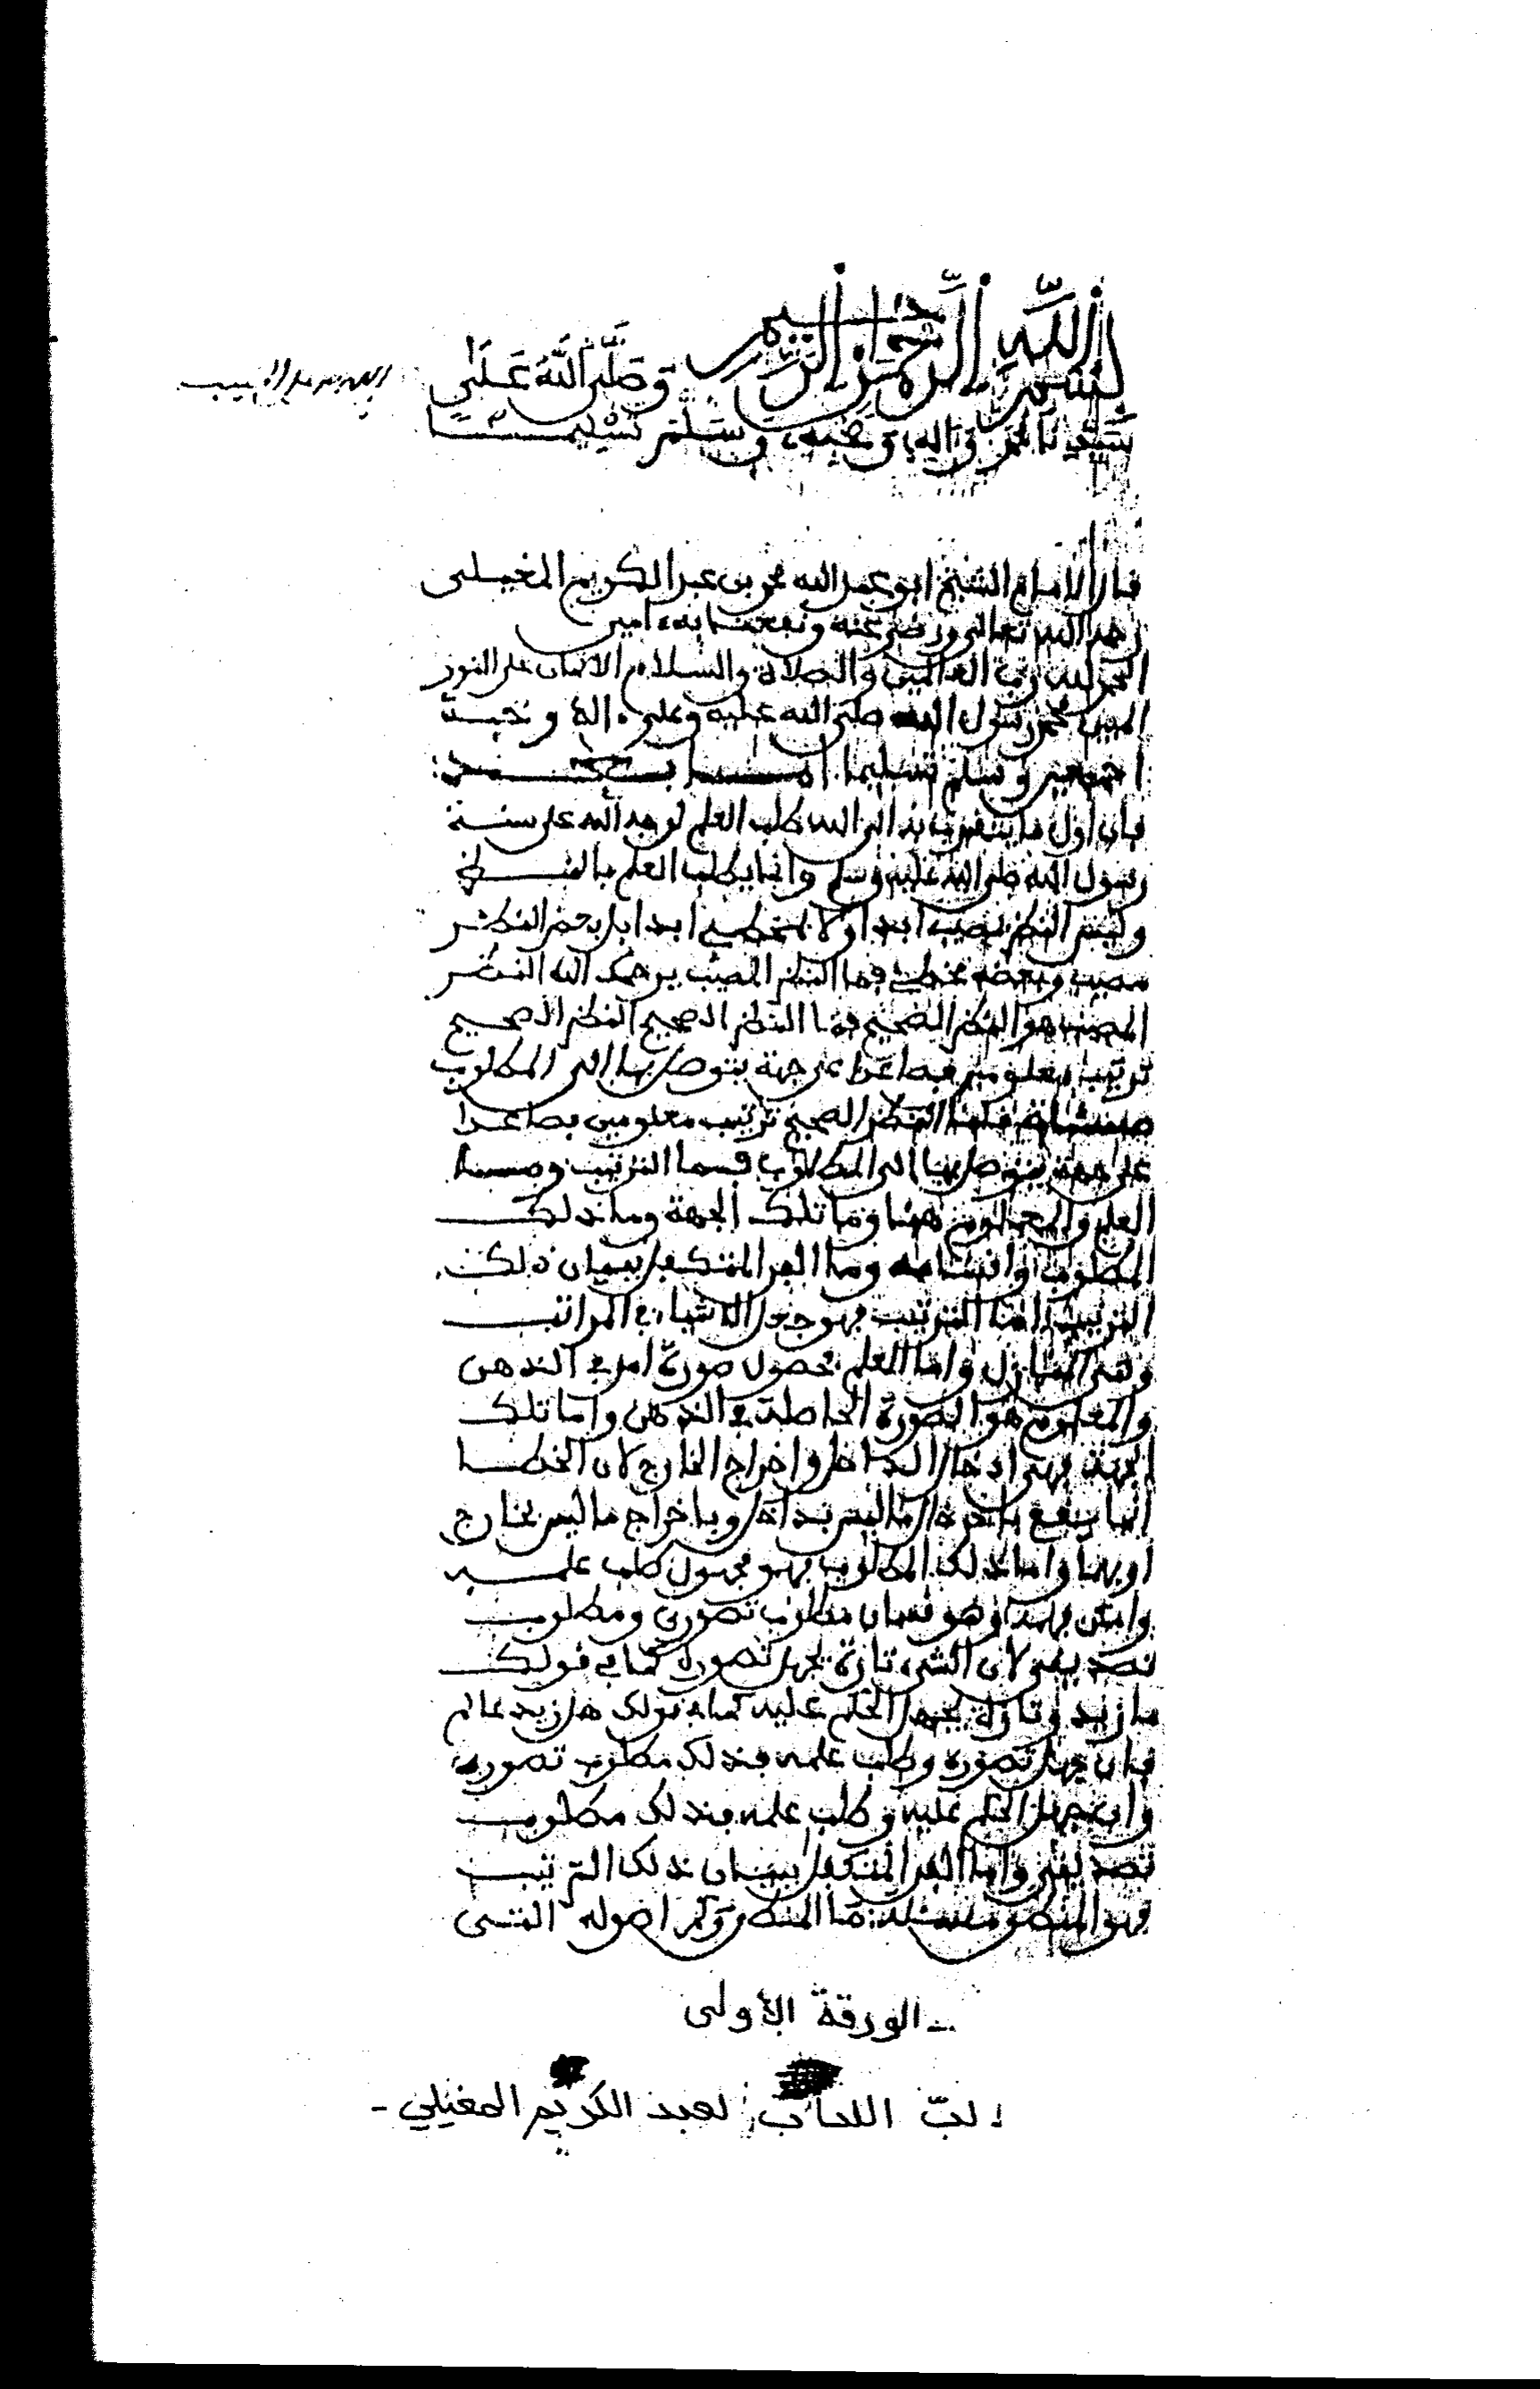 بسم الله الرحمن الرحيم وصلى الله على
سيدنا محمد وآله وصحبه وسلم تسليما
قال الامام الشيخ ابو عبد الله محمد بن عبد الكريم المغيلى
رحمه الله تعالى ورضى عنه ونفعنا به ءامين
الحمد لله رب العالمين والصلاة والسلام الاتمان على النور
المبين محمد رسول الله صلى الله عليه وعلى ءاله وصحبه
اجمعين وسلم تسليما اما بعد
فان اول ما يتقرب به الى الله طلب العلم لوجه الله على سنة
رسول الله صلى الله عليه وسلم وانما يطلب العلم بالنظر
وليس النظر يصيب ابدا ولا يخطئ ابدا بل بعض النظر
مصيب وبعضه مخطئ فما النظر المصيب يرحمك الله النظر
المصيب هو النظر الصحيح فما النظر الصحيح النظر الصحيح
ترتيب معلومين فصاعدا على جهة يتوصل بها الى المطلوب
قلنا النظر الصحيح ترتيب معلومين فصاعدا
على جهة يتوصل بها الى المطلوب فما الترتيب وما
العلم والمعلوم هنا وما تلك الجهة وما ذلك
المطلوب وما اقسامه وما الفن المتكفل ببيان ذلك
الترتيب اما الترتيب فهو جعل الاشياء في المراتب
وهي المنازل واما العلم فحصول صورة امر في الذهن
والمعلوم هو الصورة الحاصلة في الذهن واما تلك
الجهة فهي ادخال الداخل واخراج الخارج لان الخطا
انما يقع بادخال ما ليس بداخل وباخراج ما ليس بخارج
او بهما واما ذلك المطلوب فهو مجهول طلب علمه
وهو قسمان مطلوب تصورى ومطلوب
تصديقى لان الشىء تارة يجهل تصوره كما في قولك
ما زيد وتارة يجهل الحكم عليه كما في قولك هل زيد عالم
فان جهل تصوره وطلب علمه فذلك مطلوب تصورى
وان جهل الحكم عليه وطلب علمه فذلك مطلوب
تصديقى واما الفن المتكفل ببيان ذلك الترتيب
فهو المنطق ما المنطق وكم اصوله التى
- الورقة الأولى
لبّ اللباب لعبد الكريم المغيلي -